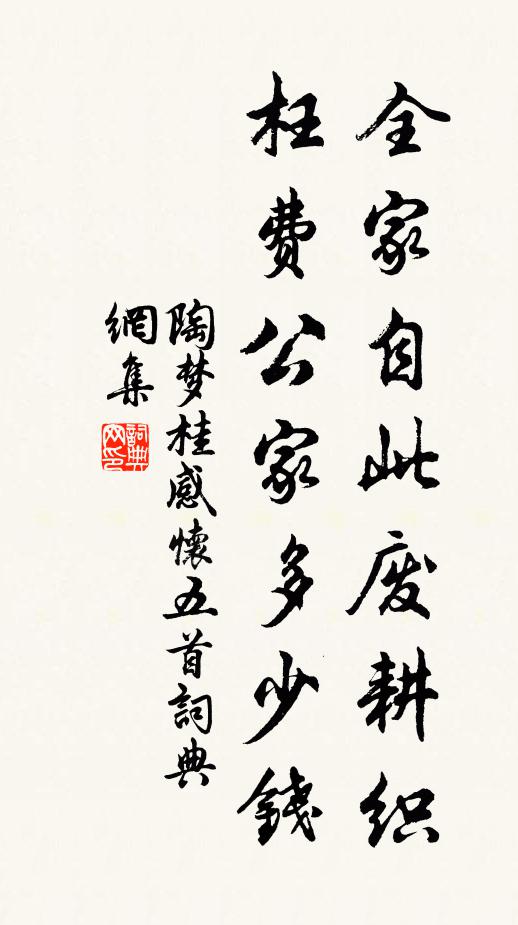 全家自此废耕织
枉费公家多少錢
陶梦桂感懷五首詞典
網集
詞典网印